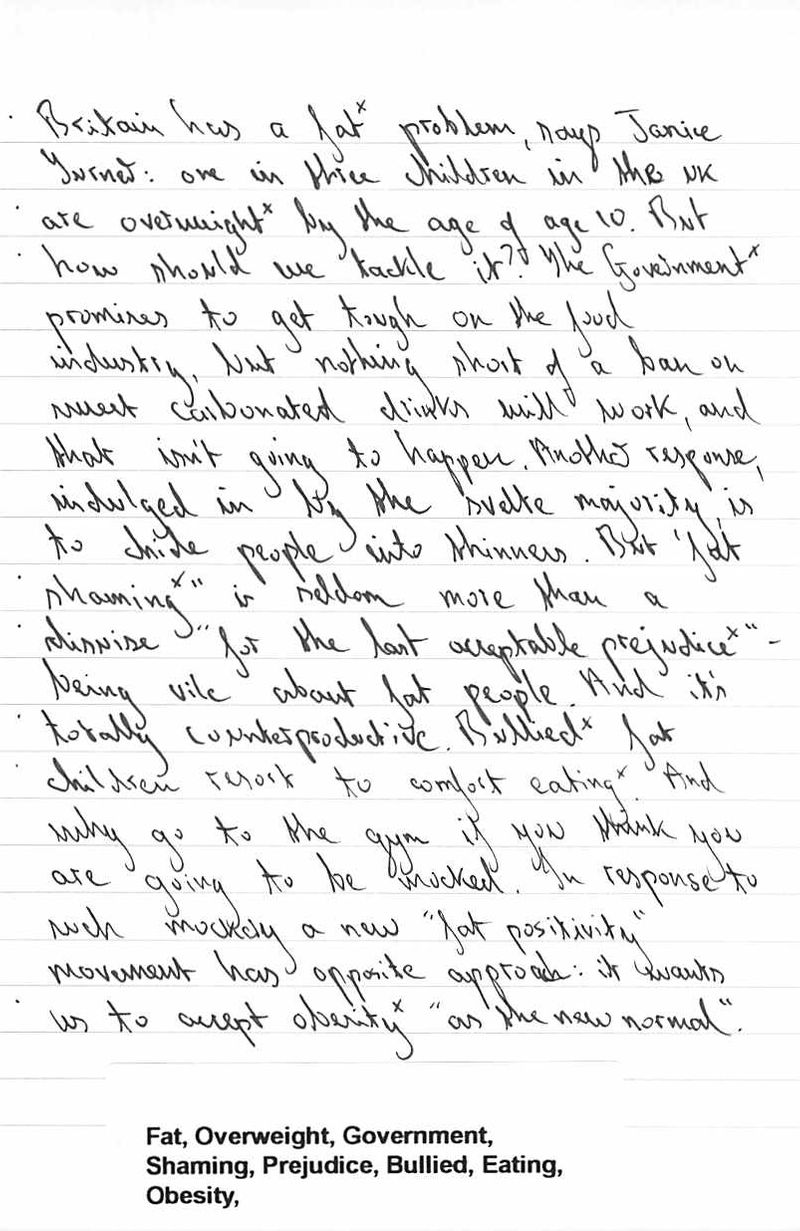 Britain has a fat^x problem, says Janice
Turner: one in three children in the UK
are overweight^x by the age of age 10. But
how should we tackle it?? The Government^x
promises to get tough on the food
industry, but nothing short of a ban on
sweet carbonated drinks will work, and
that isn't going to happen. Another response,
indulged in by the svelte majority, is
to chide people into thinness. But "fat
shaming^x" is seldom more than a
"for the last acceptable prejudice^x" -
being vile about fat people. And it's
totally counterproductive. Bullied^x fat
children resort to comfort eating^x. And
why go to the gym if you think you
are going to be mocked. In response to
such a new "fat positivity"
movement has opposite approach: it wants
us to accept obesity^x "as the new normal".
Fat, Overweight, Government,
Shaming, Prejudice, Bullied, Eating,
Obesity,